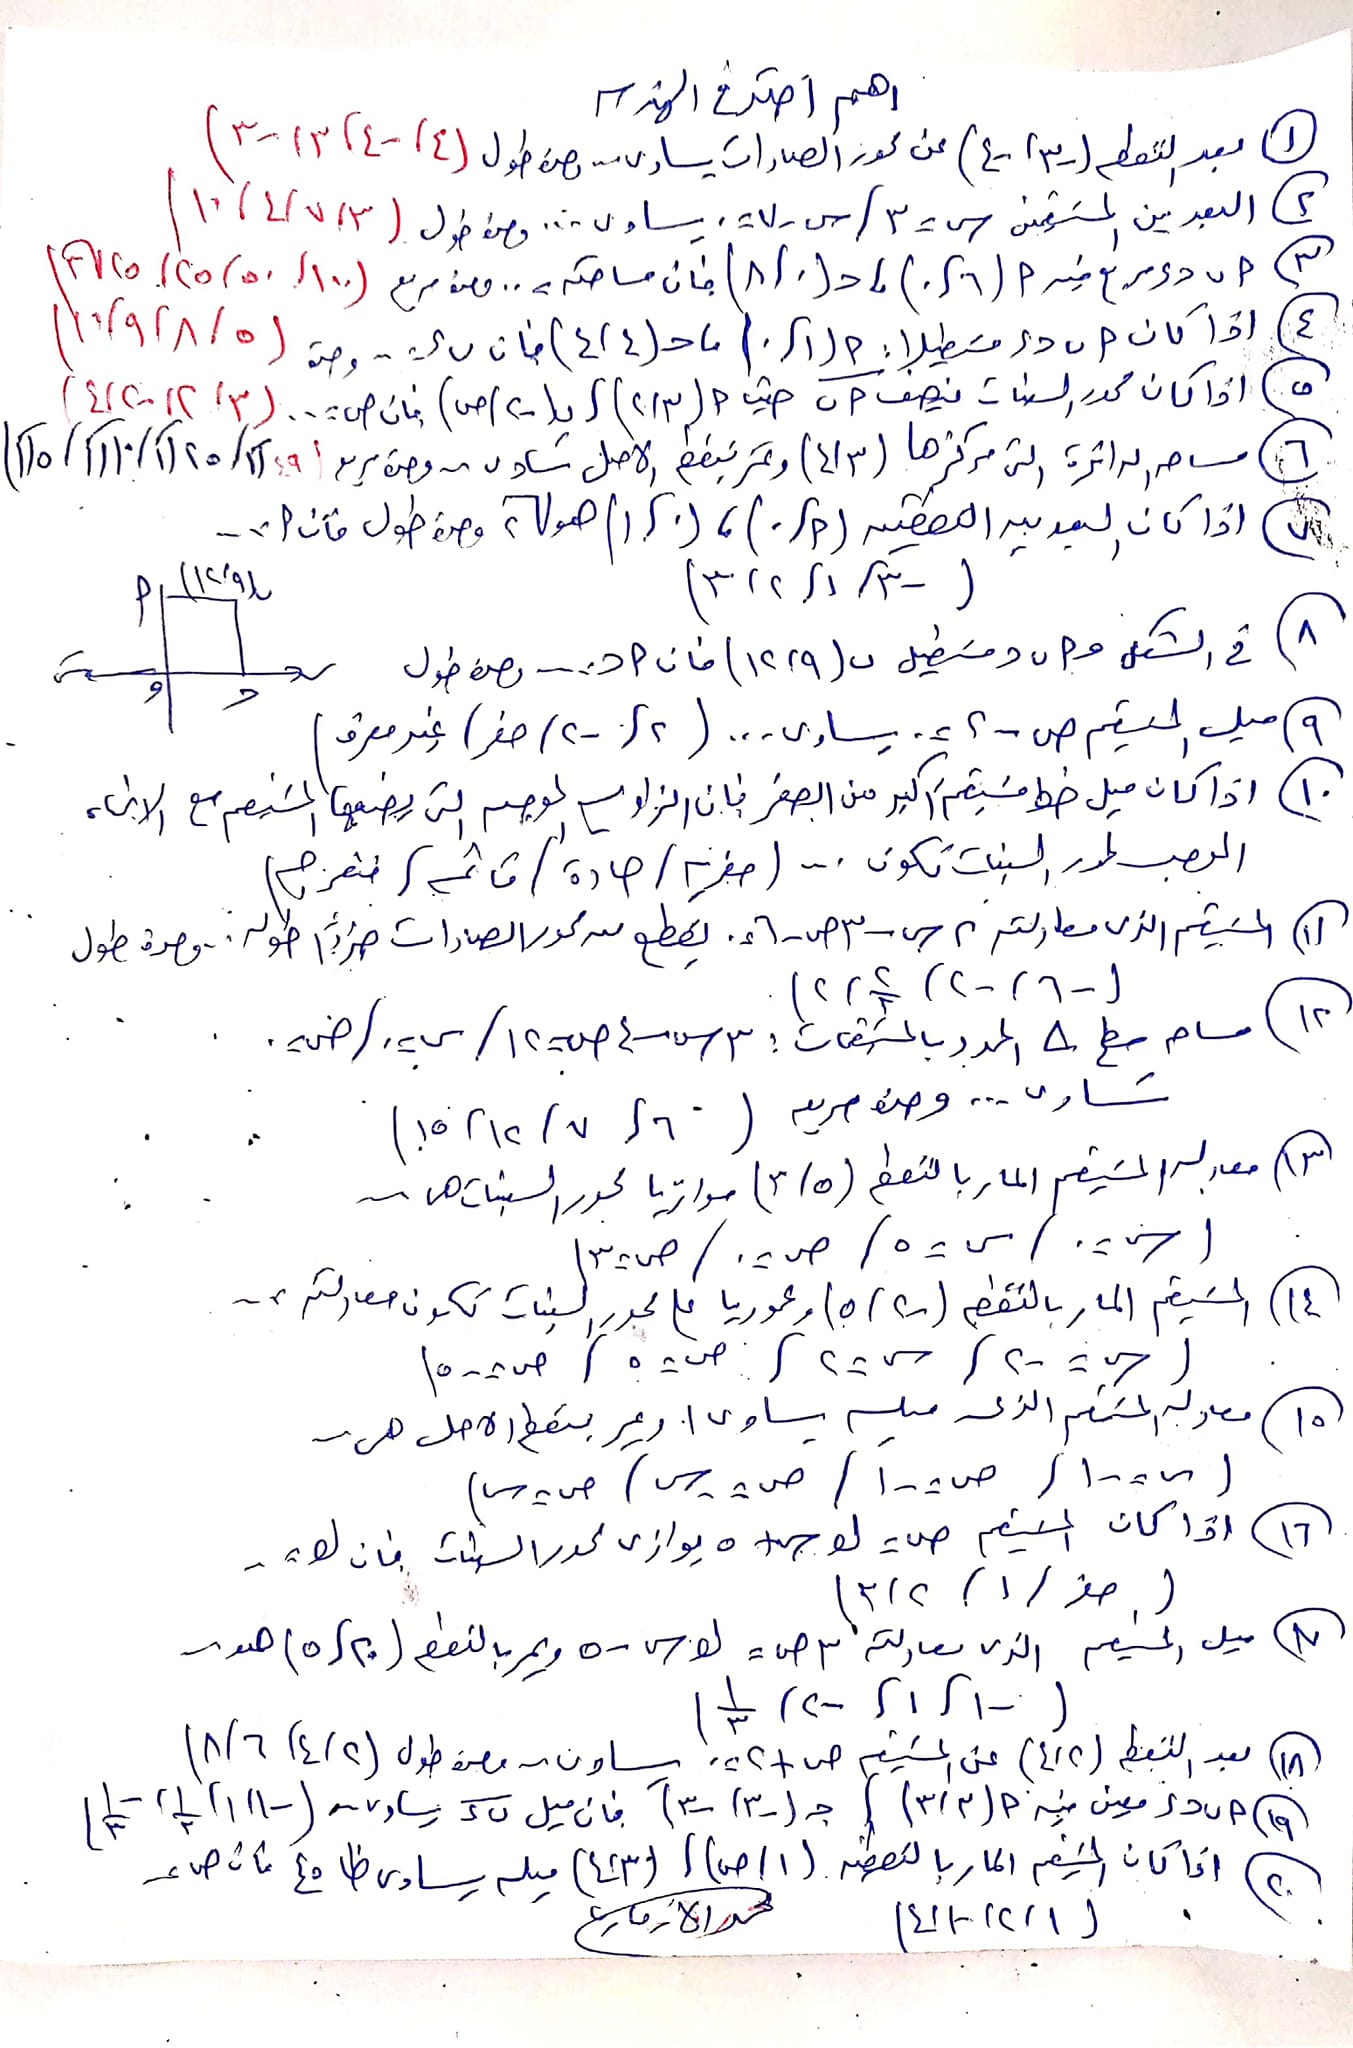 اهم اختر فى الهندسة
١ بعد النقطة (-٣، -٤) عن محور الصادات يساوى ... وحدة طول (٤، -٤، ٣، -٣)
٢ البعد بين المستقيمين س = ٣ / س - ٧ = ٠ يساوى ... وحدة طول (٣/٧/٤/١٠)
٣ P ب ح ء مربع فيه P (٦، ٠)، ح (٠، ٨) فإن مساحته = .. وحدة مربع (١٠٠/٥٠/٢٥/
٤ اذا كان P ب ح ء مستطيلا: P (١، ٠)، ح (٤، ٤) فإن ب ء = ... وحدة (٥/٨/٩/١٠)
٥ اذا كان محور السينات ينصف P ب حيث P (٣، ٢)، ب (-٢، ص) فإن ص = ... (٣/٢/-٢/٤)
٦ مساحة الدائرة التى مركزها (٣، ٤) وتمر بنقطة الاصل تساوى ... وحدة مربع
٧ اذا كان البعد بين النقطتين (P، ٠)، (٠، ١) هو ٢ وحدة طول فإن P = ...
(-٣/١/٢/٣)
P ب(٩، ١٢)
س و ح س
٨ فى الشكل و P ب ح مستطيل ب (٩، ١٢) فإن P ح = ... وحدة طول
٩ ميل المستقيم ص - ٢ = ٠ يساوى ... (٢/ -٢/ صفر/ غير معرف)
١٠ اذا كان ميل خط مستقيم أكبر من الصفر فإن الزاوية الموجبه التى يصنعها المستقيم مع الاتجاه
الموجب لمحور السينات تكون ... (صفرية/ حادة/ قائمة/ منفرجة)
١١ المستقيم الذى معادلته ٢س - ٣ص - ٦ = ٠ يقطع من محور الصادات جزءًا طوله ... وحدة طول
(-٦/ -٢/ ٢/٣ / ٢)
١٢ مساحه سطح △ المحدد بالمستقيمات: ٣س - ٤ص = ١٢ / س = ٠ / ص = ٠
تساوى ... وحدة مربعه (٦/ ٧/ ١٢/ ١٥)
١٣ معادلة المستقيم المار بالنقطة (٥، ٣) موازيا محور السينات هى ...
(س = ٠ / س = ٥ / ص = ٠ / ص = ٣)
١٤ المستقيم المار بالنقطة (-٢، ٥) وعموديا على محور السينات تكون معادلته ...
(س = -٢ / س = ٢ / ص = ٥ / ص = -٥)
١٥ معادلة المستقيم الذى ميله يساوى ١ ويمر بنقطة الاصل هى ...
(س = -١ / ص = -١ / ص = -س / ص = س)
١٦ اذا كان المستقيم ص = ك س + ٥ يوازى محور السينات فإن ك = ...
(صفر/ ١/ ٢/ ٣)
١٧ ميل المستقيم الذى معادلته ٣ص = ك س - ٥ ويمر بالنقطة (٢٠، ٥) هو ...
(-١/ ١/ -٢/ ١/٣)
١٨ بعد النقطة (٢، ٤) عن المستقيم ص + ٢ = ٠ يساوى ... وحدة طول (٢/٤/٦/٨)
١٩ P ب ح ء معين فيه P (٣، ٣)، ج (-٣، -٣) فإن ميل ب ء يساوى ... (-١/ ١/ ١/٢/ -١/٣)
٢٠ اذا كان المستقيم المار بالنقطتين (١، ص)، (٣، ٤) ميله يساوى ظا ٤٥ فإن ص = ...
(١/ ٢/ -١/ ٤)